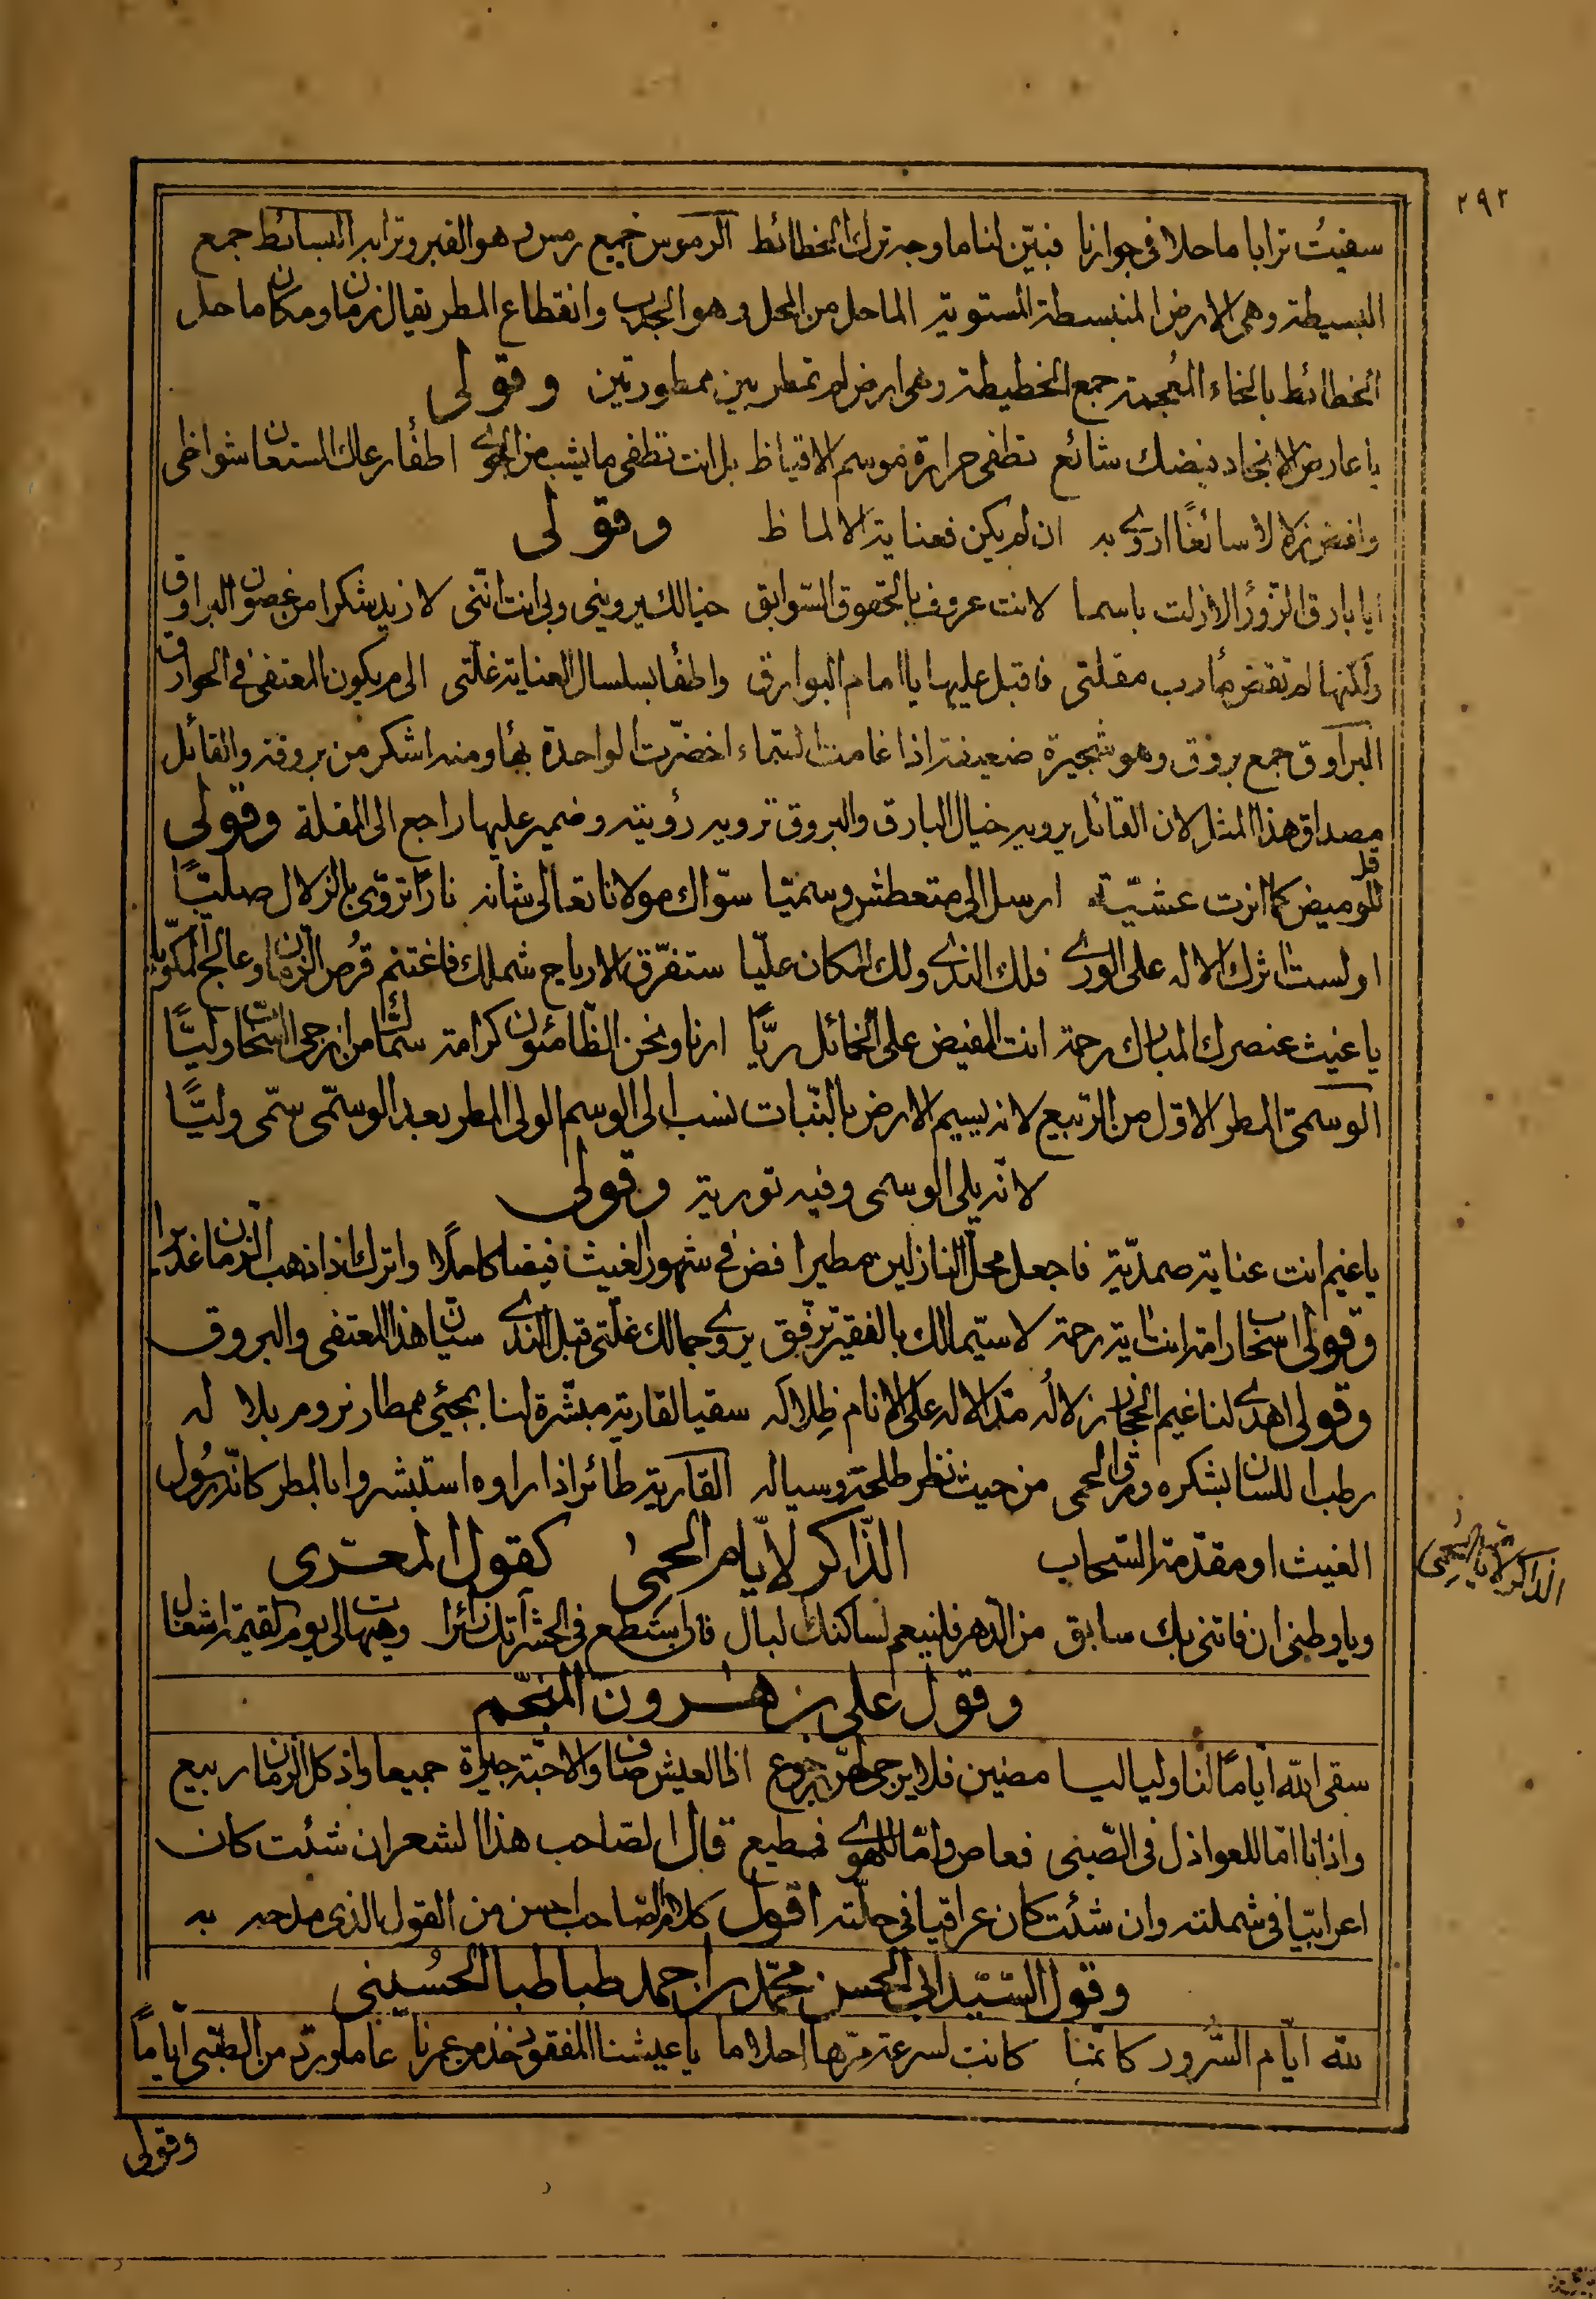 ٢٩٢
سقيت ترابا ماحلا في جوارنا فبيّن لنا ما وجه ترك الخطائط الرموس جمع رمس وهو القبر وترابه البسائط جمع
البسيطة وهي الارض المنبسطة المستوية الماحل من المحل وهو الجدب وانقطاع المطر يقال زمان ومكان ماحل
الخطائط بالخاء المعجمة جمع الخطيطة وهي ارض لم تمطر بين ممطورتين وقولي
يا عارض الانجاد فيضك شائع تطفي حرارة موسم الاقياظ بل انت تطفي ما يشب من الجوى اطفأ رعاك المستعان شواظي
وافض زلالا سائغا اروى به ان لم يكن فعناية الالماظ وقولي
ايا بارق الزوراء لا زلت باسما لانت عروف بالحقوق السوابق خيالك يرويني وبي انت انني لازيد شكرا من غصون البراوق
ولكنها لم تقض مأرب مقلتي فاقبل عليها يا امام البوارق واطفأ بسلسال العناية غلتي الى م يكون المعتفي في الحوارق
البراوق جمع بروق وهو شجيرة ضعيفة اذا غامت السماء اخضرّت الواحدة بهاء ومنه اشكر من بروقة والقائل
مصداق هذا المثل لان القائل يرويه خيال البارق والبروق ترويه رؤيته وضمير عليها راجع الى المقلة وقولي
قل للوميض كما انرت عشيّة ارسل الى متعطش وسميّا سوّاك مولانا تعالى شانه نارا تروّي بالزلال صليّا
اولست اثرك الاله على الورى فلك الندى ولك المكان عليّا ستفرّق الارياح شملك فاغتنم فرص الزمان وعالج المكويّا
يا غيث عنصرك المبارك رحمة انت المفيض على الخمائل ريّا ارنا ونحن الظامئون كرامة سمّاك من ازجى السحاب وليّا
الوسمي المطر الاول من الربيع لانه يسم الارض بالنبات نسب الى الوسم الولي المطر بعد الوسمي سمّي وليّا
لانه يلي الوسمي وفيه تورية وقولي
يا غيم انت عناية صمديّة فاجعل محل النازلين مطيرا فض في شهور الغيث فيضا كاملا واترك اذا ذهب الزمان غديرا
وقولي اسحاب رامة انت اية رحمة لا سيما لك بالفقير ترفق يروي جمالك غلتي قبل الندى سيّان هذا المعتفي والبروق
وقولي اهدى لنا غيم الحجاز زلاله مدّ الاله على الانام ظلاله سقيا لقارية مبشّرة لنا بمجيئ ممطار نروم بلاله
رطب اللسان بشكره وثرى الحمى من حيث نظر طلحه وسياله القارية طائر اذا راوه استبشروا بالمطر كانه رسول
الغيث او مقدمة السحاب الذاكر لايام الحمى كقول المعري
ويا وطني ان فاتني بك سابق من الدهر فلينعم لساكنك البال فان استطع في الحشر آتك زائرا وهيهات لي يوم القيمة اشغال
وقول علي بن هرون المنجم
سقى الله اياما لنا ولياليا مضين فلا يرجى لهن رجوع اذ العيش صاف والاحبة جيرة جميعا واذ كل الزمان ربيع
واذ انا اما للعواذل في الصبى فعاص واما للهوى فمطيع قال الصاحب هذا الشعر ان شئت كان
اعرابيّا في شملته وان شئت كان عراقيا في حلّته اقول كلام الصاحب احسن من القول الذي مدحه به
وقول السيد ابي الحسن محمد بن احمد طباطبا الحسيني
لله ايام السرور كانما كانت لسرعة مرّها احلاما يا عيشنا المفقود خذ من عمرنا عاما ورد من الصبى اياما
وقولي
الذاكر لايام الحمى